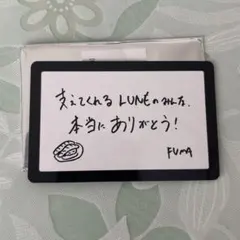 支えてくれるLUNÉのみんな、
本当にありがとう!
FUMA